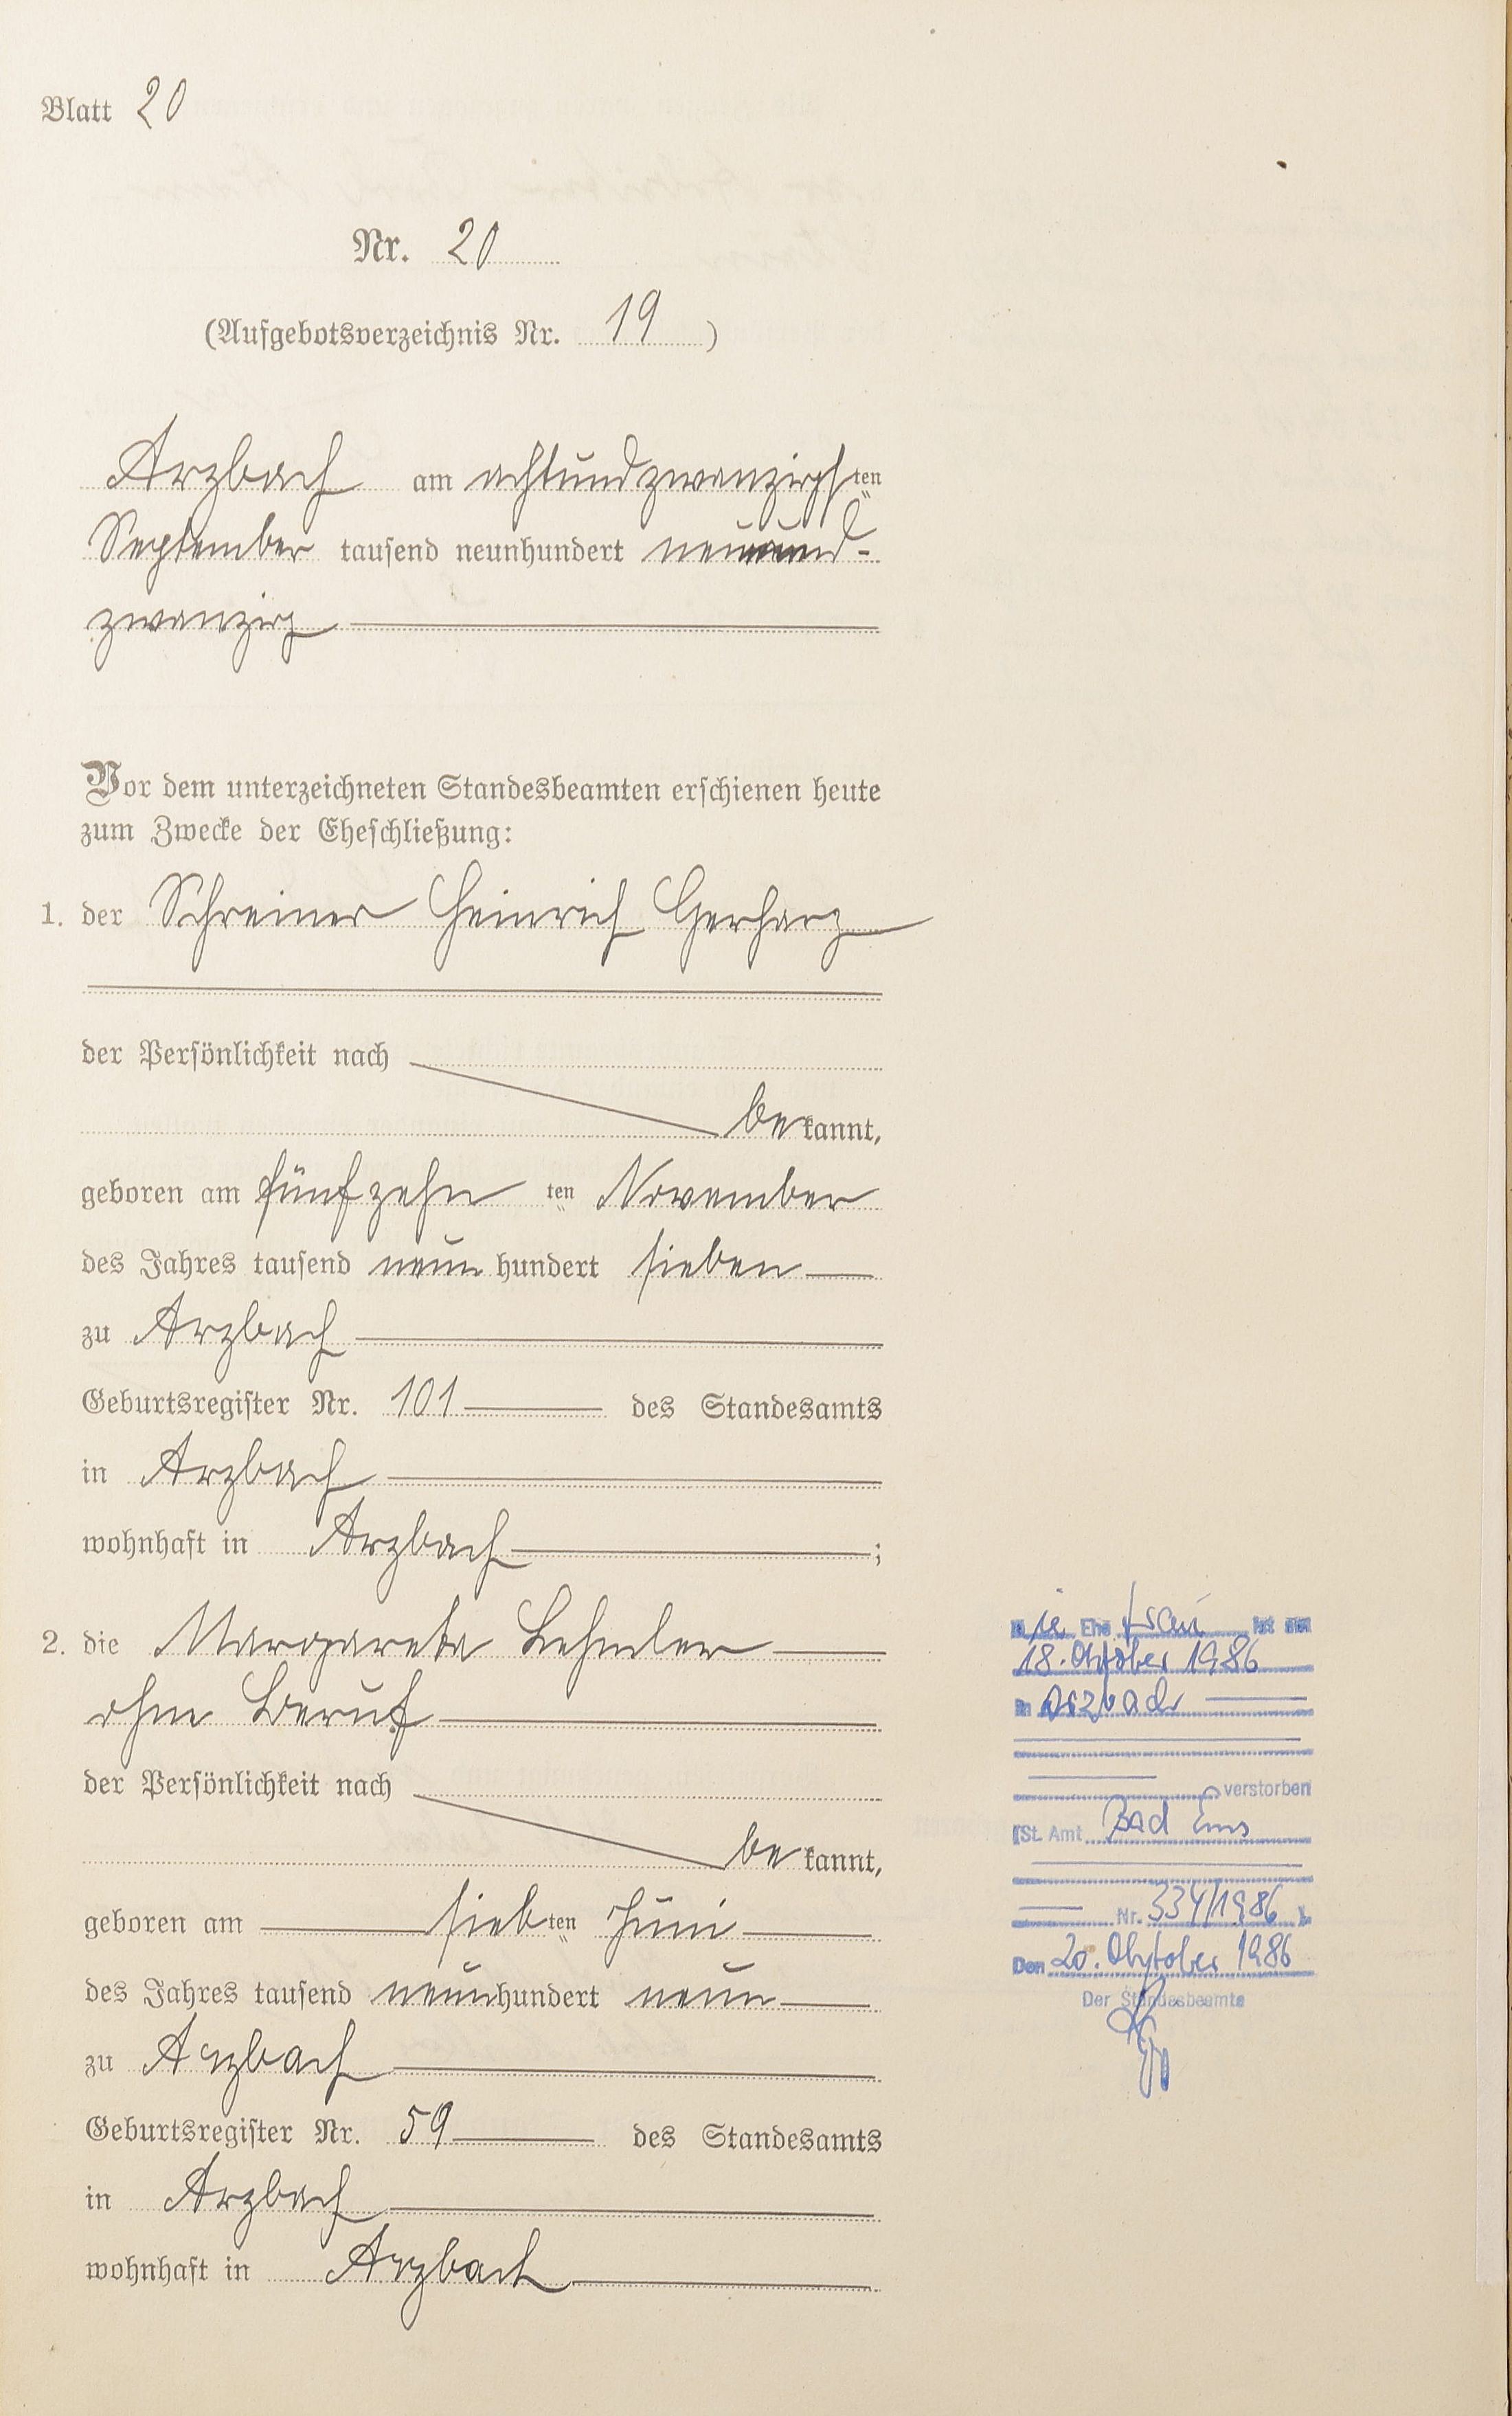 Blatt 20
Nr. 20
(Aufgebotsverzeichnis Nr. 19)
Arzbach am achtundzwanzigsten
September tausend neunhundert neunund-
zwanzig
Vor dem unterzeichneten Standesbeamten erschienen heute
zum Zwecke der Eheschließung:
1. der Schreiner Heinrich Gerharz
der Persönlichkeit nach
bekannt,
geboren am fünfzehnten November
des Jahres tausend neunhundert sieben
zu Arzbach
Geburtsregister Nr. 101 des Standesamts
in Arzbach
wohnhaft in Arzbach;
2. die Margareta Lehmler
ohne Beruf
der Persönlichkeit nach
bekannt,
geboren am siebten Juni
des Jahres tausend neunhundert neun
zu Arzbach
Geburtsregister Nr. 59 des Standesamts
in Arzbach
wohnhaft in Arzbach
Die Ehefrau ist am
18. Oktober 1986
in Arzbach
verstorben
(St. Amt Bad Ems
Nr. 334/1986)
Den 20. Oktober 1986
Der Standesbeamte